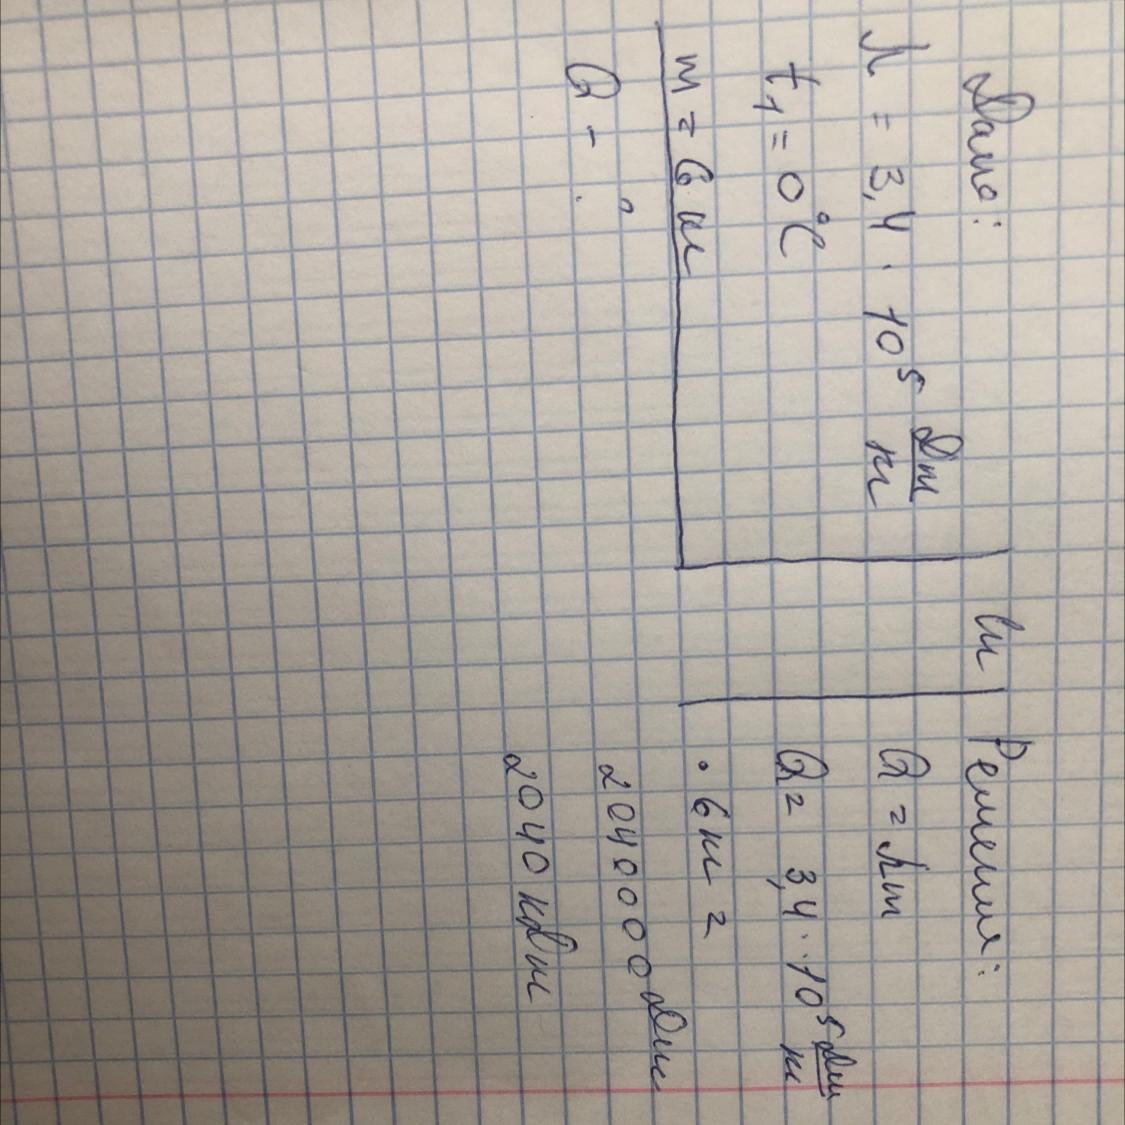 Дано:
λ = 3,4 · 10⁵ Дж/кг
t₁ = 0°С
m = 6 кг
Q - ?
Си
Решения:
Q = λm
Q = 3,4 · 10⁵ Дж/кг
· 6 кг =
2040000 Дж
2040 кДж